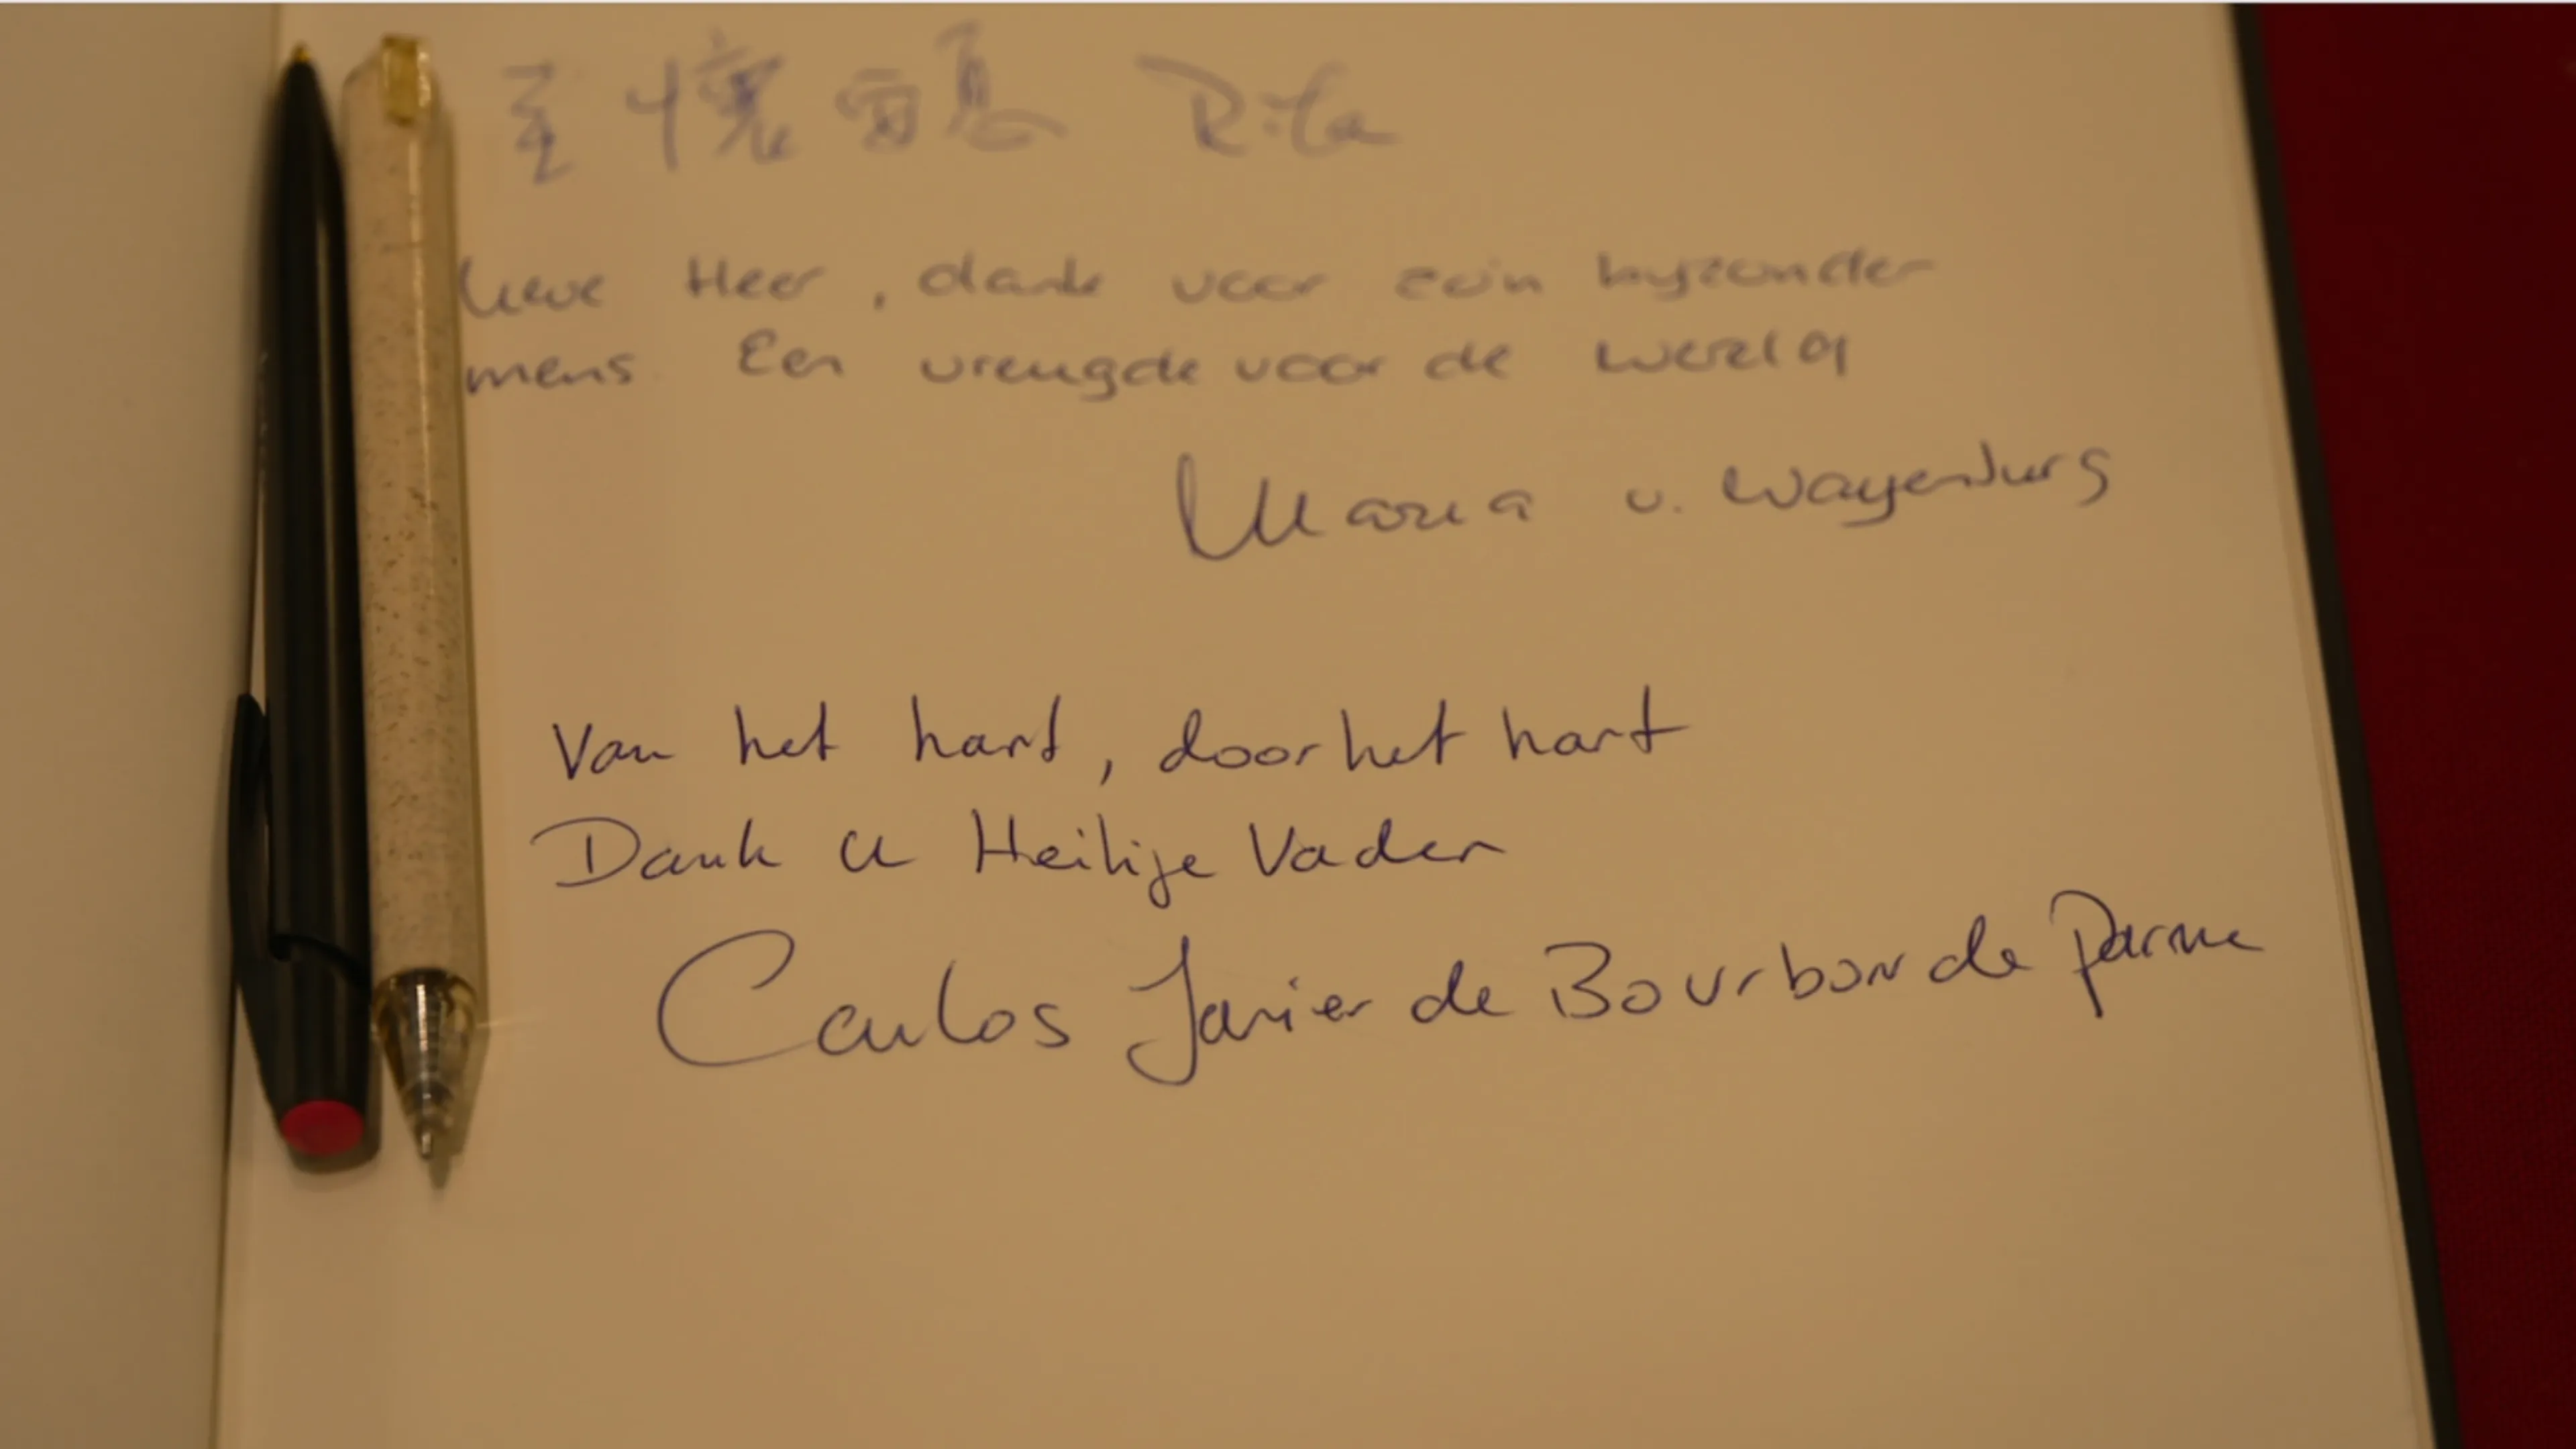 Rita
Lieve Heer, dank voor zo'n byzonder
mens. Een vreugde voor de wereld
Maria v. Wayenburg
Van het hart, door het hart
Dank u Heilige Vader
Carlos Javier de Bourbon de Parme